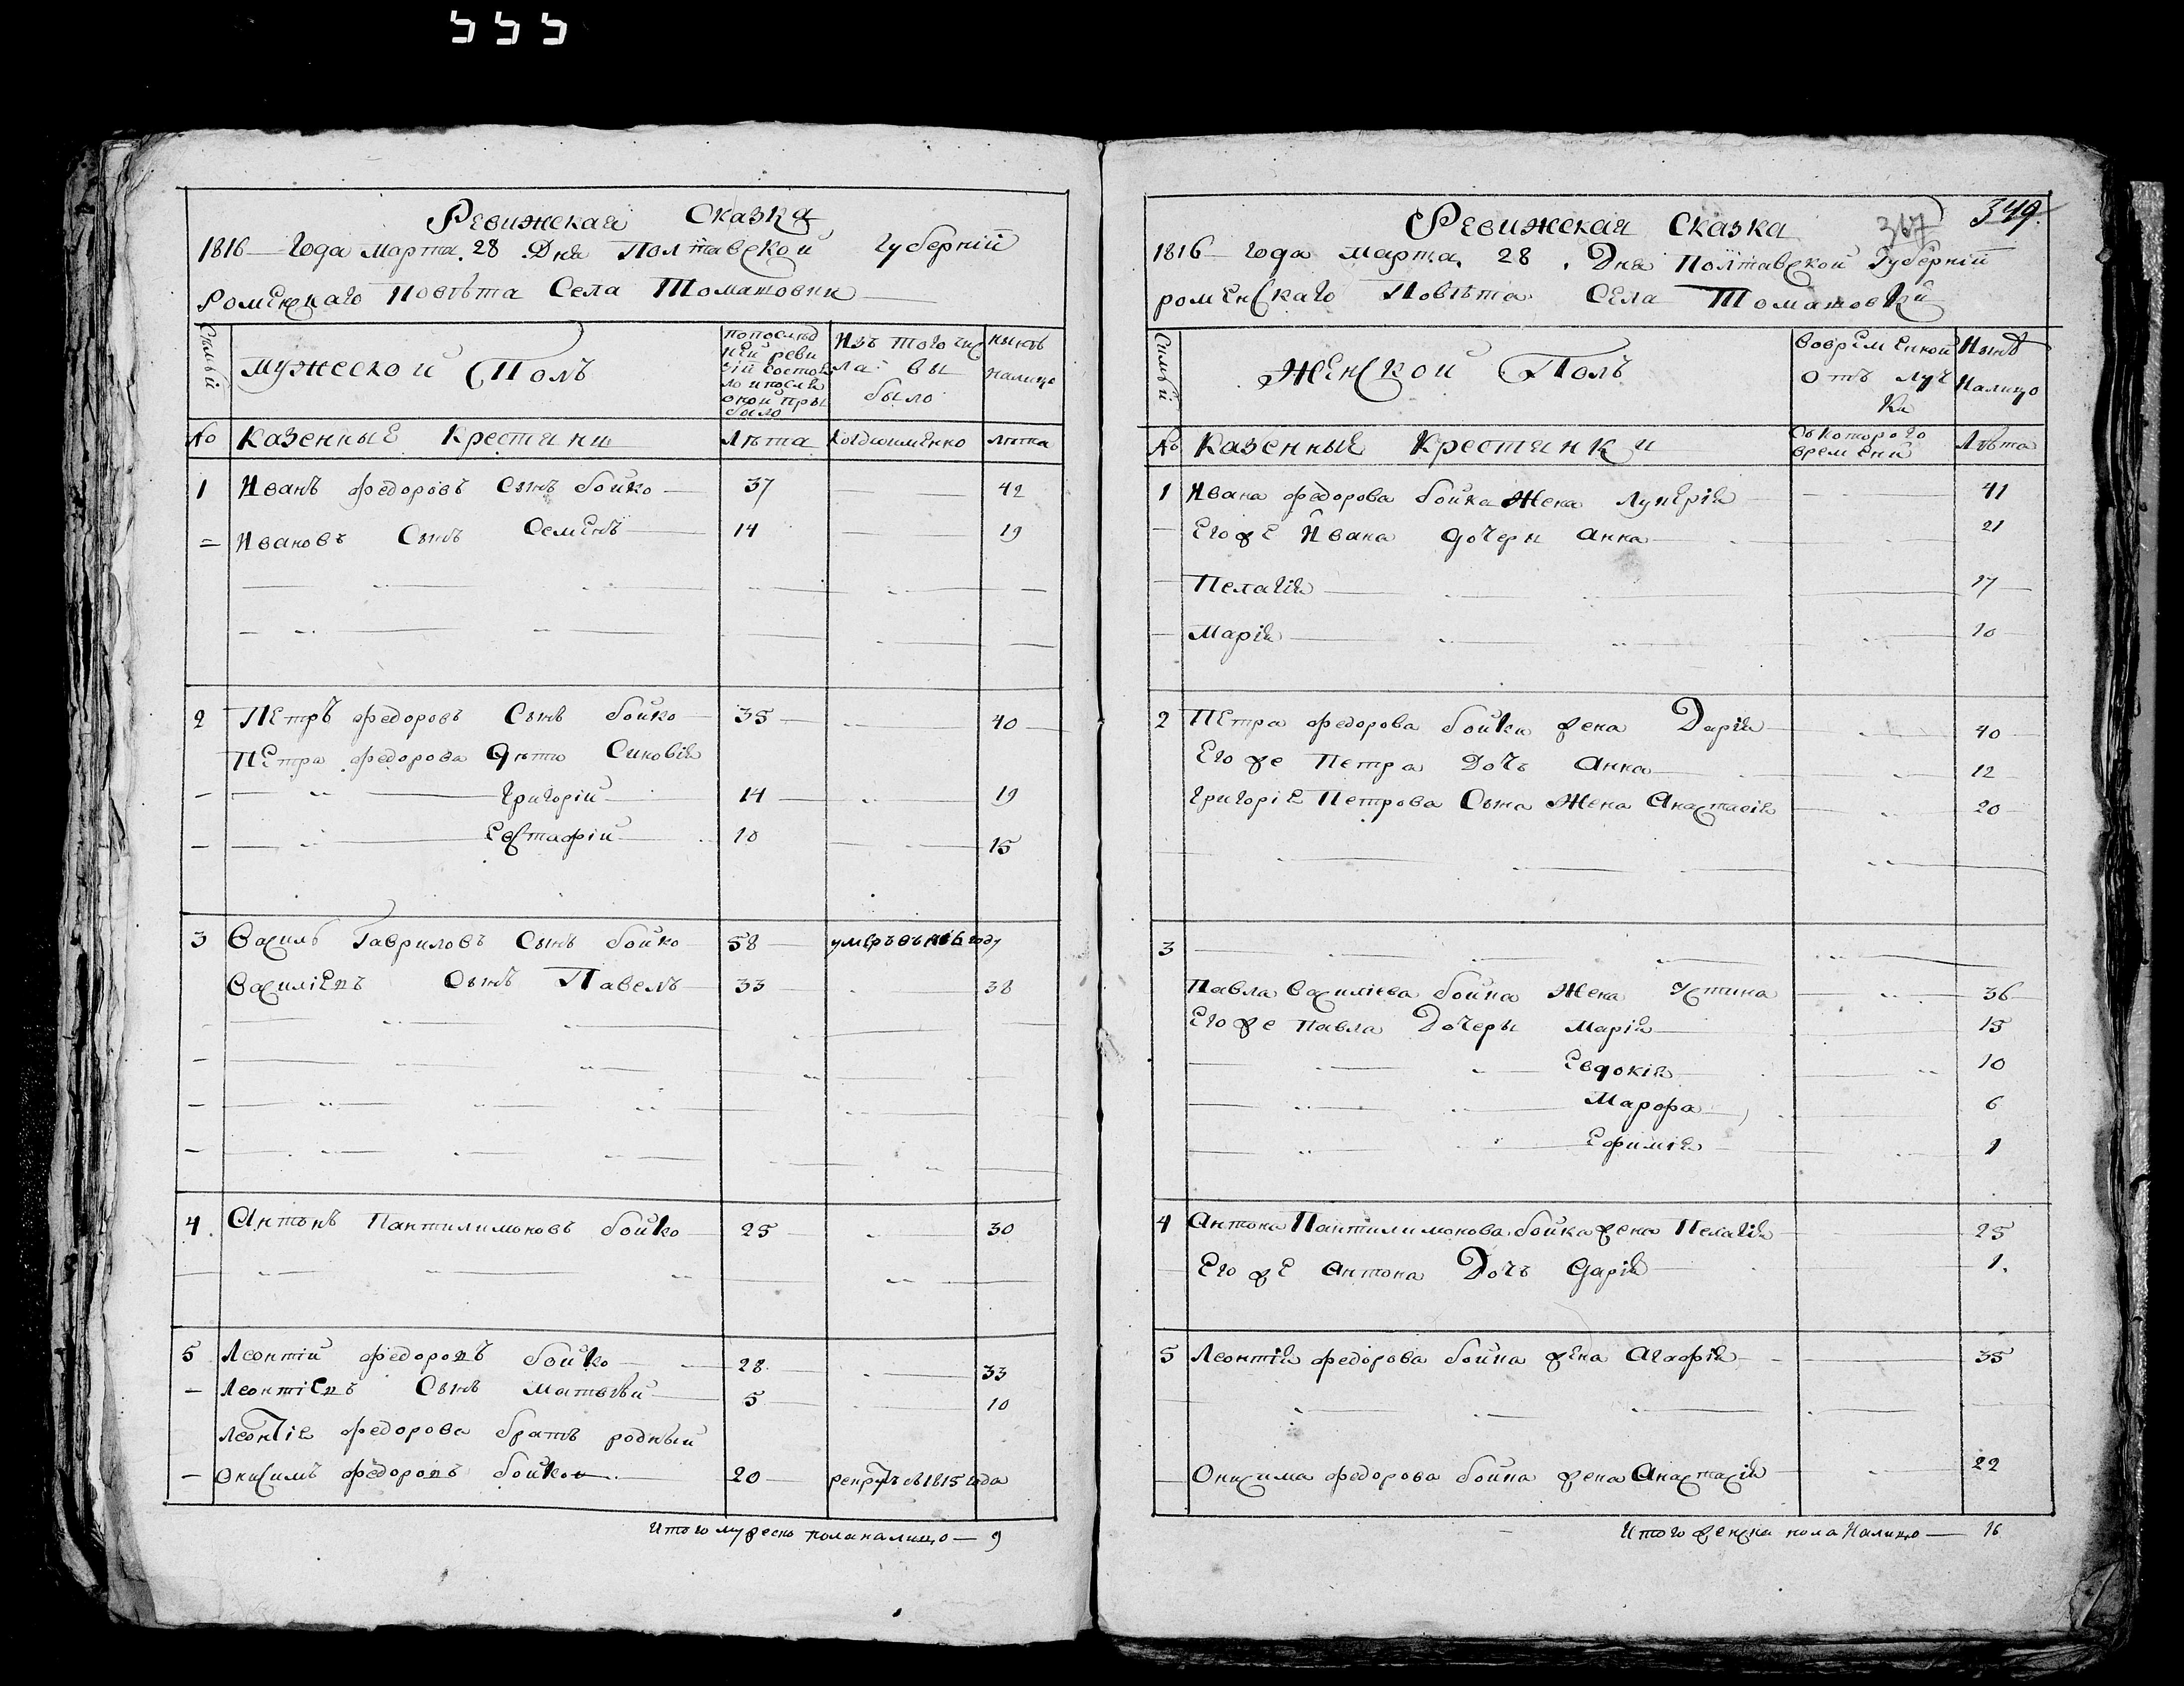 Ревижская Сказка
1816 года марта 28 Дня Полтавской губернїй
Роменскаго Повѣта Села Томашовки
Сѣмьй
мужеской Полъ
попослѣд
ней реви
зїй состоя
ло ипослѣ
оной при
было
Изъ того чис
ла вы
было
нынѣ
налицо
№ Казенные Крестяни Лѣта Когдаименно лѣта
1 Иванъ федоровъ Сынъ бойко 37 42
Ивановъ Сынъ Семенъ 14 19
2 Петръ федоровъ Сынъ бойко 35 40
Петра федорова Дѣти Сиковія
Григорїй 14 19
Евстафїй 10 15
3 Василь Гавриловъ Сынъ бойко 58 умеръ въ году
Василіевъ Сынъ Павелъ 33 38
4 Антонъ Пантилимоновъ бойко 25 30
5 Леонтїй федоровъ бойко 28 33
Леонтіевъ Сынъ Матвѣй 5 10
Леонтія федорова братъ родный
Онисимъ федоровъ бойко 20 рекрутъ 1815 года
Итого мужеска пола налицо 9
Ревижская Сказка
367
349
1816 года марта 28 Дня Полтавской Губернїй
роменскаго Повѣта Села Томашовкй
Сѣмьй
Женской Полъ
Вовременой
Отъ луч
ки
Нынѣ
Налицо
№ Казенные Крестянки Съкоторого времени Лѣта
1 Ивана федорова бойка Жена Лукерія 41
Его же Ивана дочери Анна 21
Пелагія 17
Марія 10
2 Петра федорова бойки жена Дарія 40
Его же Петра Дочъ Анна 12
Григорія Петрова Сына Жена Анастасія 20
3
Павла Василіева бойка Жена Устина 36
Его же Павла Дочеры Марія 15
Евдокія 10
Марфа 6
Ефимія 1
4 Антона Пантилимонова бойка жена Пелагія 25
Его же Антона Дочъ Дарія 1.
5 Леонтія федорова бойка жена Агафія 35
Онисима федорова бойка жена Анастасія 22
Итого женска пола Налицо 16